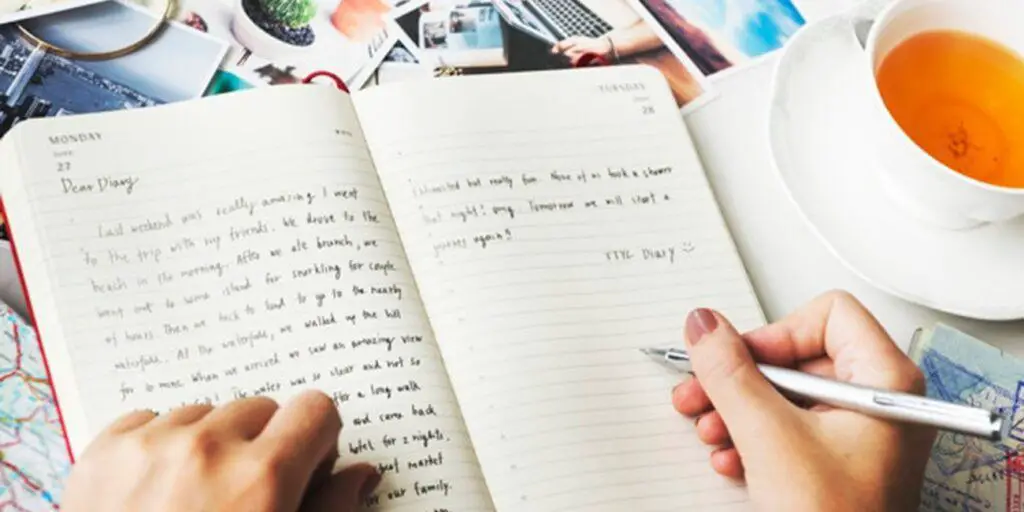 MONDAY
27
Dear Diary
Last weekend was really amazing! I went
to the trip with my friends. We drove to the
beach in the morning. After we ate brunch, we
went out to some island for snorkling for couple
of hours. Then we back to land to go to the nearby
waterfall. At the waterfall, we walked up the hill
for 10 mins. When we arrived we saw an amazing view
The water was so clear and not so
after a long walk
and came back
hotel for 2 nights.
great market
for our family.
TUESDAY
28
Exhausted but really fun. None of us took a shower
that night! omg. Tomorrow we will start a
journey again!!
TTYL Diary